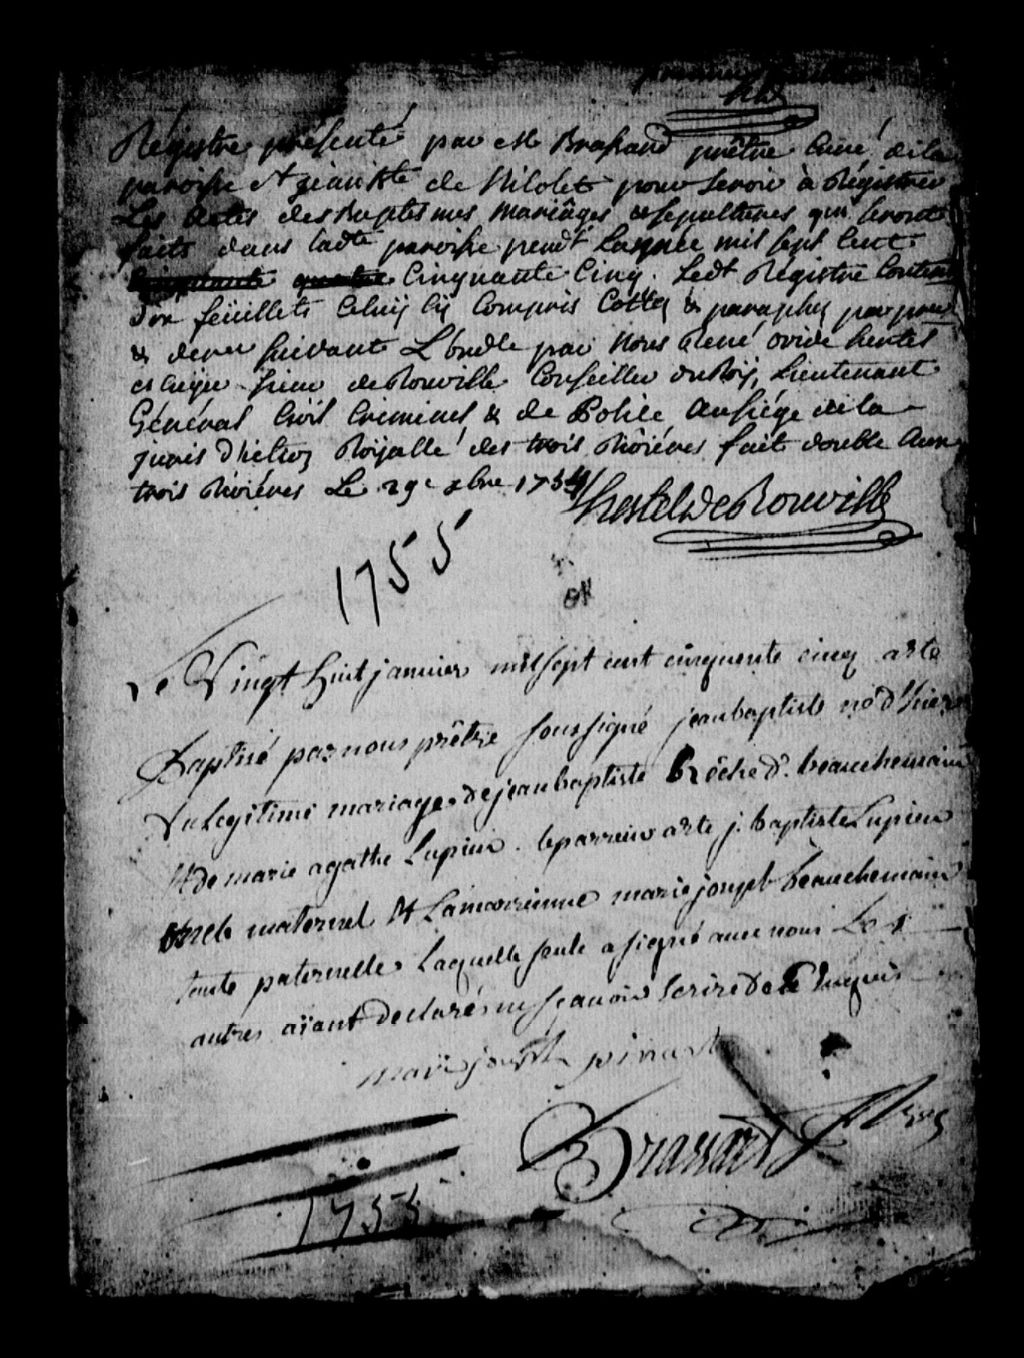 premier feuillet
hk
Régistre présenté par Mr Brassard prêtre Curé de la
paroisse St jean Bte de Nicolet pour servir à Régistrer
Les Actes des Baptesmes mariâges & sepultures qui seront
faits dans ladte paroisse pendt Lannée mil sept Cent
Cinquante quatre Cinquante Cinq. Ledt Régistre Content
dix feüillets Celuÿ cÿ Compris Cottés & paraphés par premr
& derer suivant L'ordce par Nous René ovide hertel
escuÿer sieur de Rouville Conseiller du Roÿ, Lieutenant
Général Civil Criminel & de Police au siége de la
jurisdiction Roÿalle des trois Riviéres fait double aux
trois Riviéres Le 29e xbre 1754
hertel de Rouville
1755
Le Vingt huit janvier mil sept cent cinquente cinq a ete
Baptisé par nous prêtre soussigné jean baptiste né d'hier
du legitime mariage de jean baptiste brôche d. beauchemain
et de marie agathe Lupien. le parrein a ete j. baptiste Lupien
oncle maternel et La marrienne marie joseph beauchemain
tante paternelle Laquelle seule a signé avec nous Les
autres aïant declarés ne sçavoir Ecrire de ce Enquis
mari joseph pinart
Brassard ptre
1755